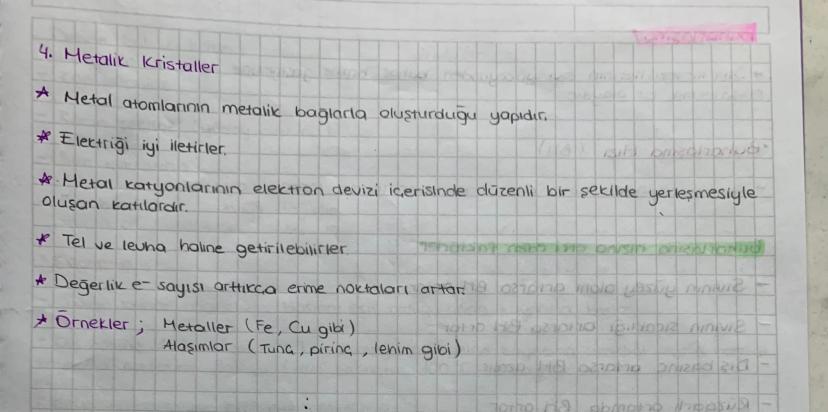 4. Metalik Kristaller
★ Metal atomlarının metalik bağlarla oluşturduğu yapıdır.
★ Elektriği iyi iletirler.
★ Metal katyonlarının elektron devizi içerisinde düzenli bir şekilde yerleşmesiyle
oluşan katılardır.
★ Tel ve levha haline getirilebilirler
★ Değerlik e- sayısı arttıkca erime noktaları artar.
★ Örnekler; Metaller (Fe, Cu gibi)
Alaşımlar (Tunç, pirinç, lehim gibi)